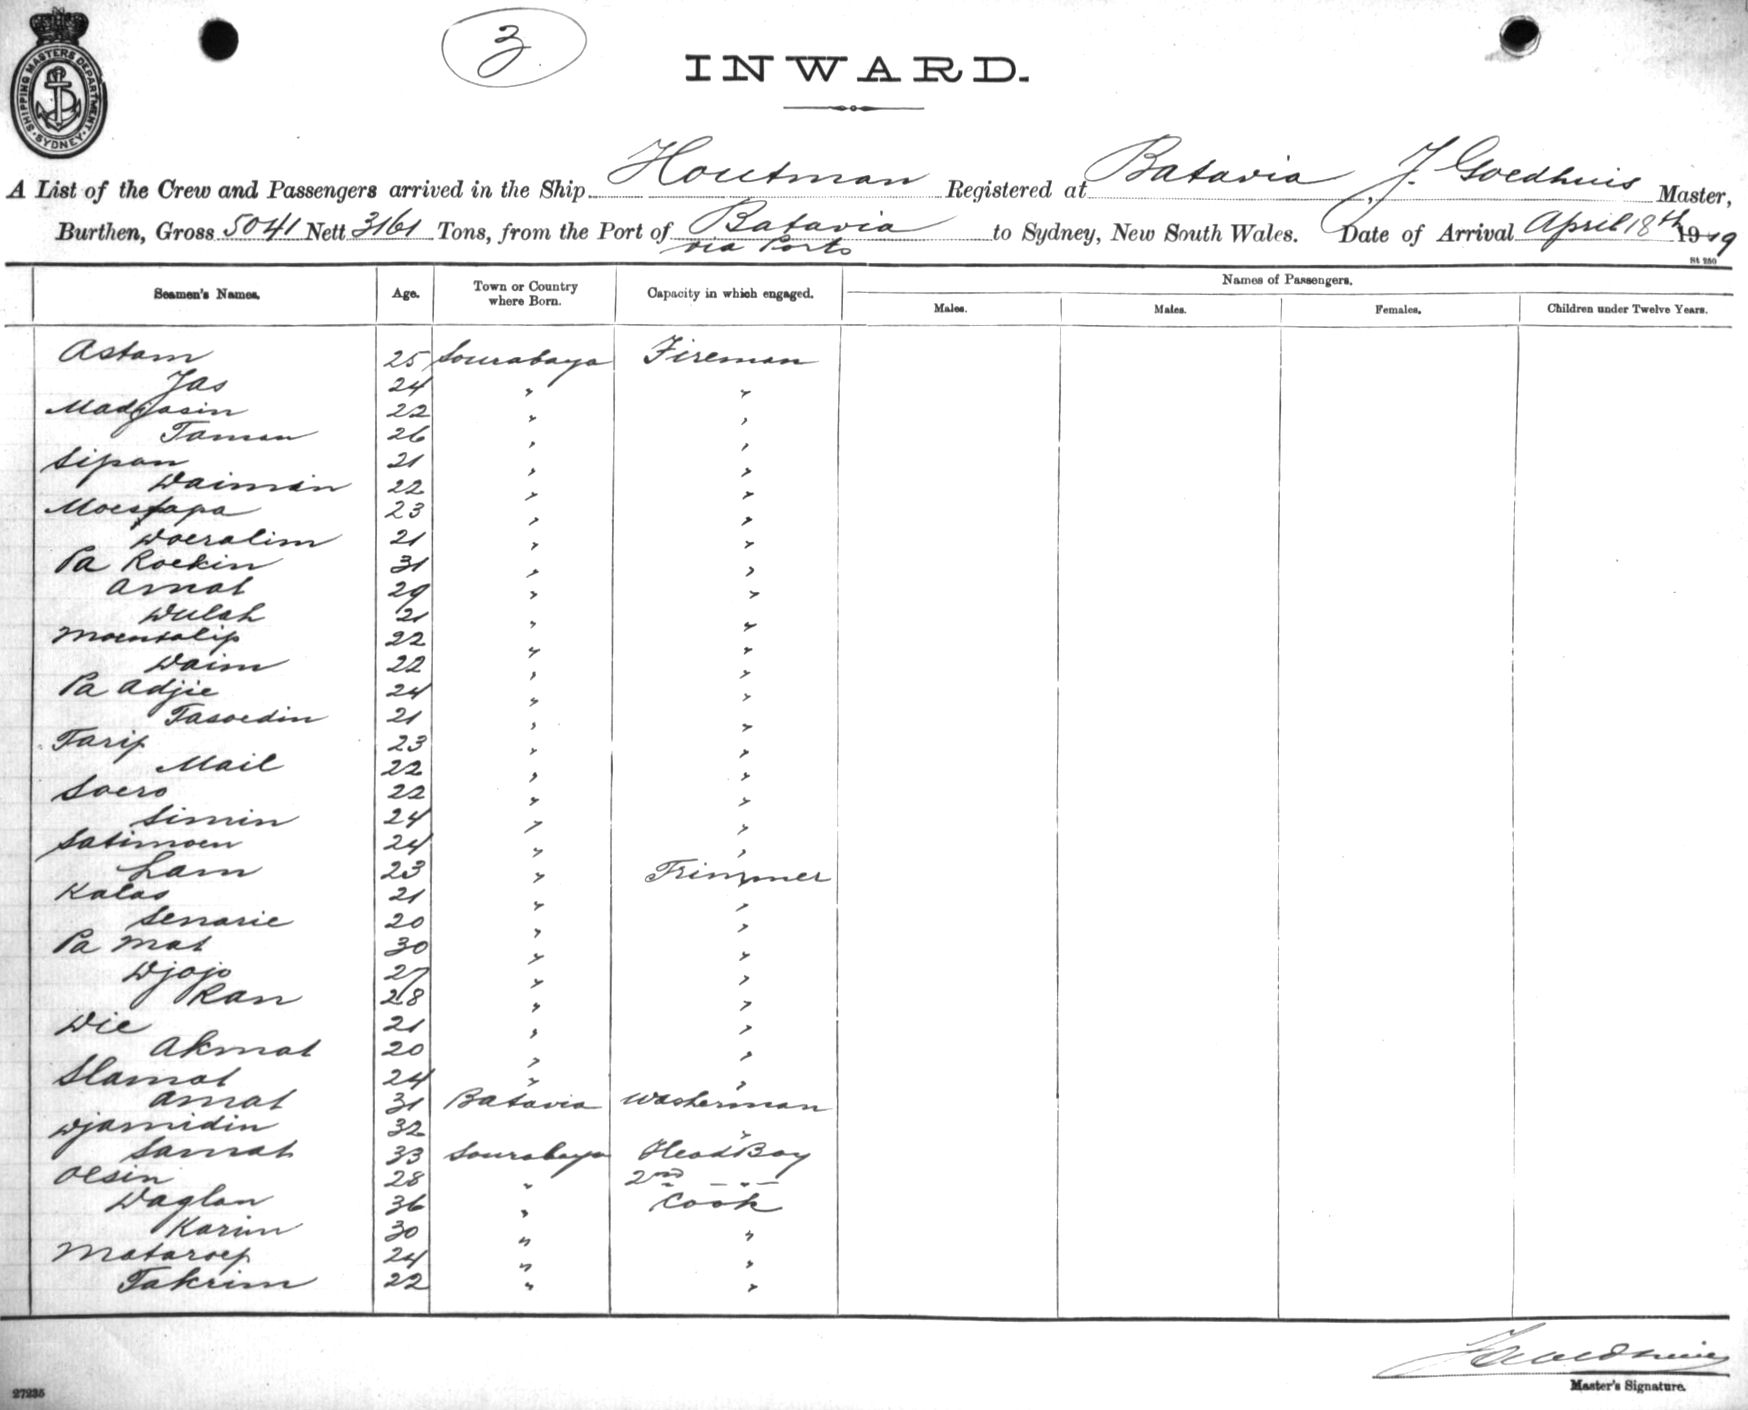 3
SHIPPING MASTERS DEPARTMENT SYDNEY
INWARD.
A List of the Crew and Passengers arrived in the Ship Houtman Registered at Batavia, J. Goedhuis Master,
Burthen, Gross 5041 Nett 3161 Tons, from the Port of Batavia to Sydney, New South Wales. Date of Arrival April 18th 1919
via Ports
St 250
Seamen's Names. Age. Town or Country where Born. Capacity in which engaged. Names of Passengers.
Males. Males. Females. Children under Twelve Years.
Astam 25 Sourabaya Fireman
Jas 24 " "
Madjasin 22 " "
Taman 26 " "
Sipan 21 " "
Waiman 22 " "
Moestapa 23 " "
Woeralim 21 " "
Pa Roekin 31 " "
Amat 29 " "
Wulah 21 " "
Moentalip 22 " "
Waim 22 " "
Pa Adjie 24 " "
Tasoedin 21 " "
Tarip 23 " "
Mail 22 " "
Soero 22 " "
Simin 24 " "
Satimoen 24 " "
Lam 23 " Trimmer
Kalas 21 " "
Senarie 20 " "
Pa Mat 30 " "
Djojo 27 " "
Ran 28 " "
Wie 21 " "
Akmat 20 " "
Slamat 24 " "
Amat 31 Batavia Washerman
Djamidin 32 "
Samat 33 Sourabaya Head Boy
Oesin 28 " 2nd "
Waglan 36 " Cook
Karim 30 " "
Mataroep 24 " "
Takrim 22 " "
J Goedhuis
Master's Signature.
27235